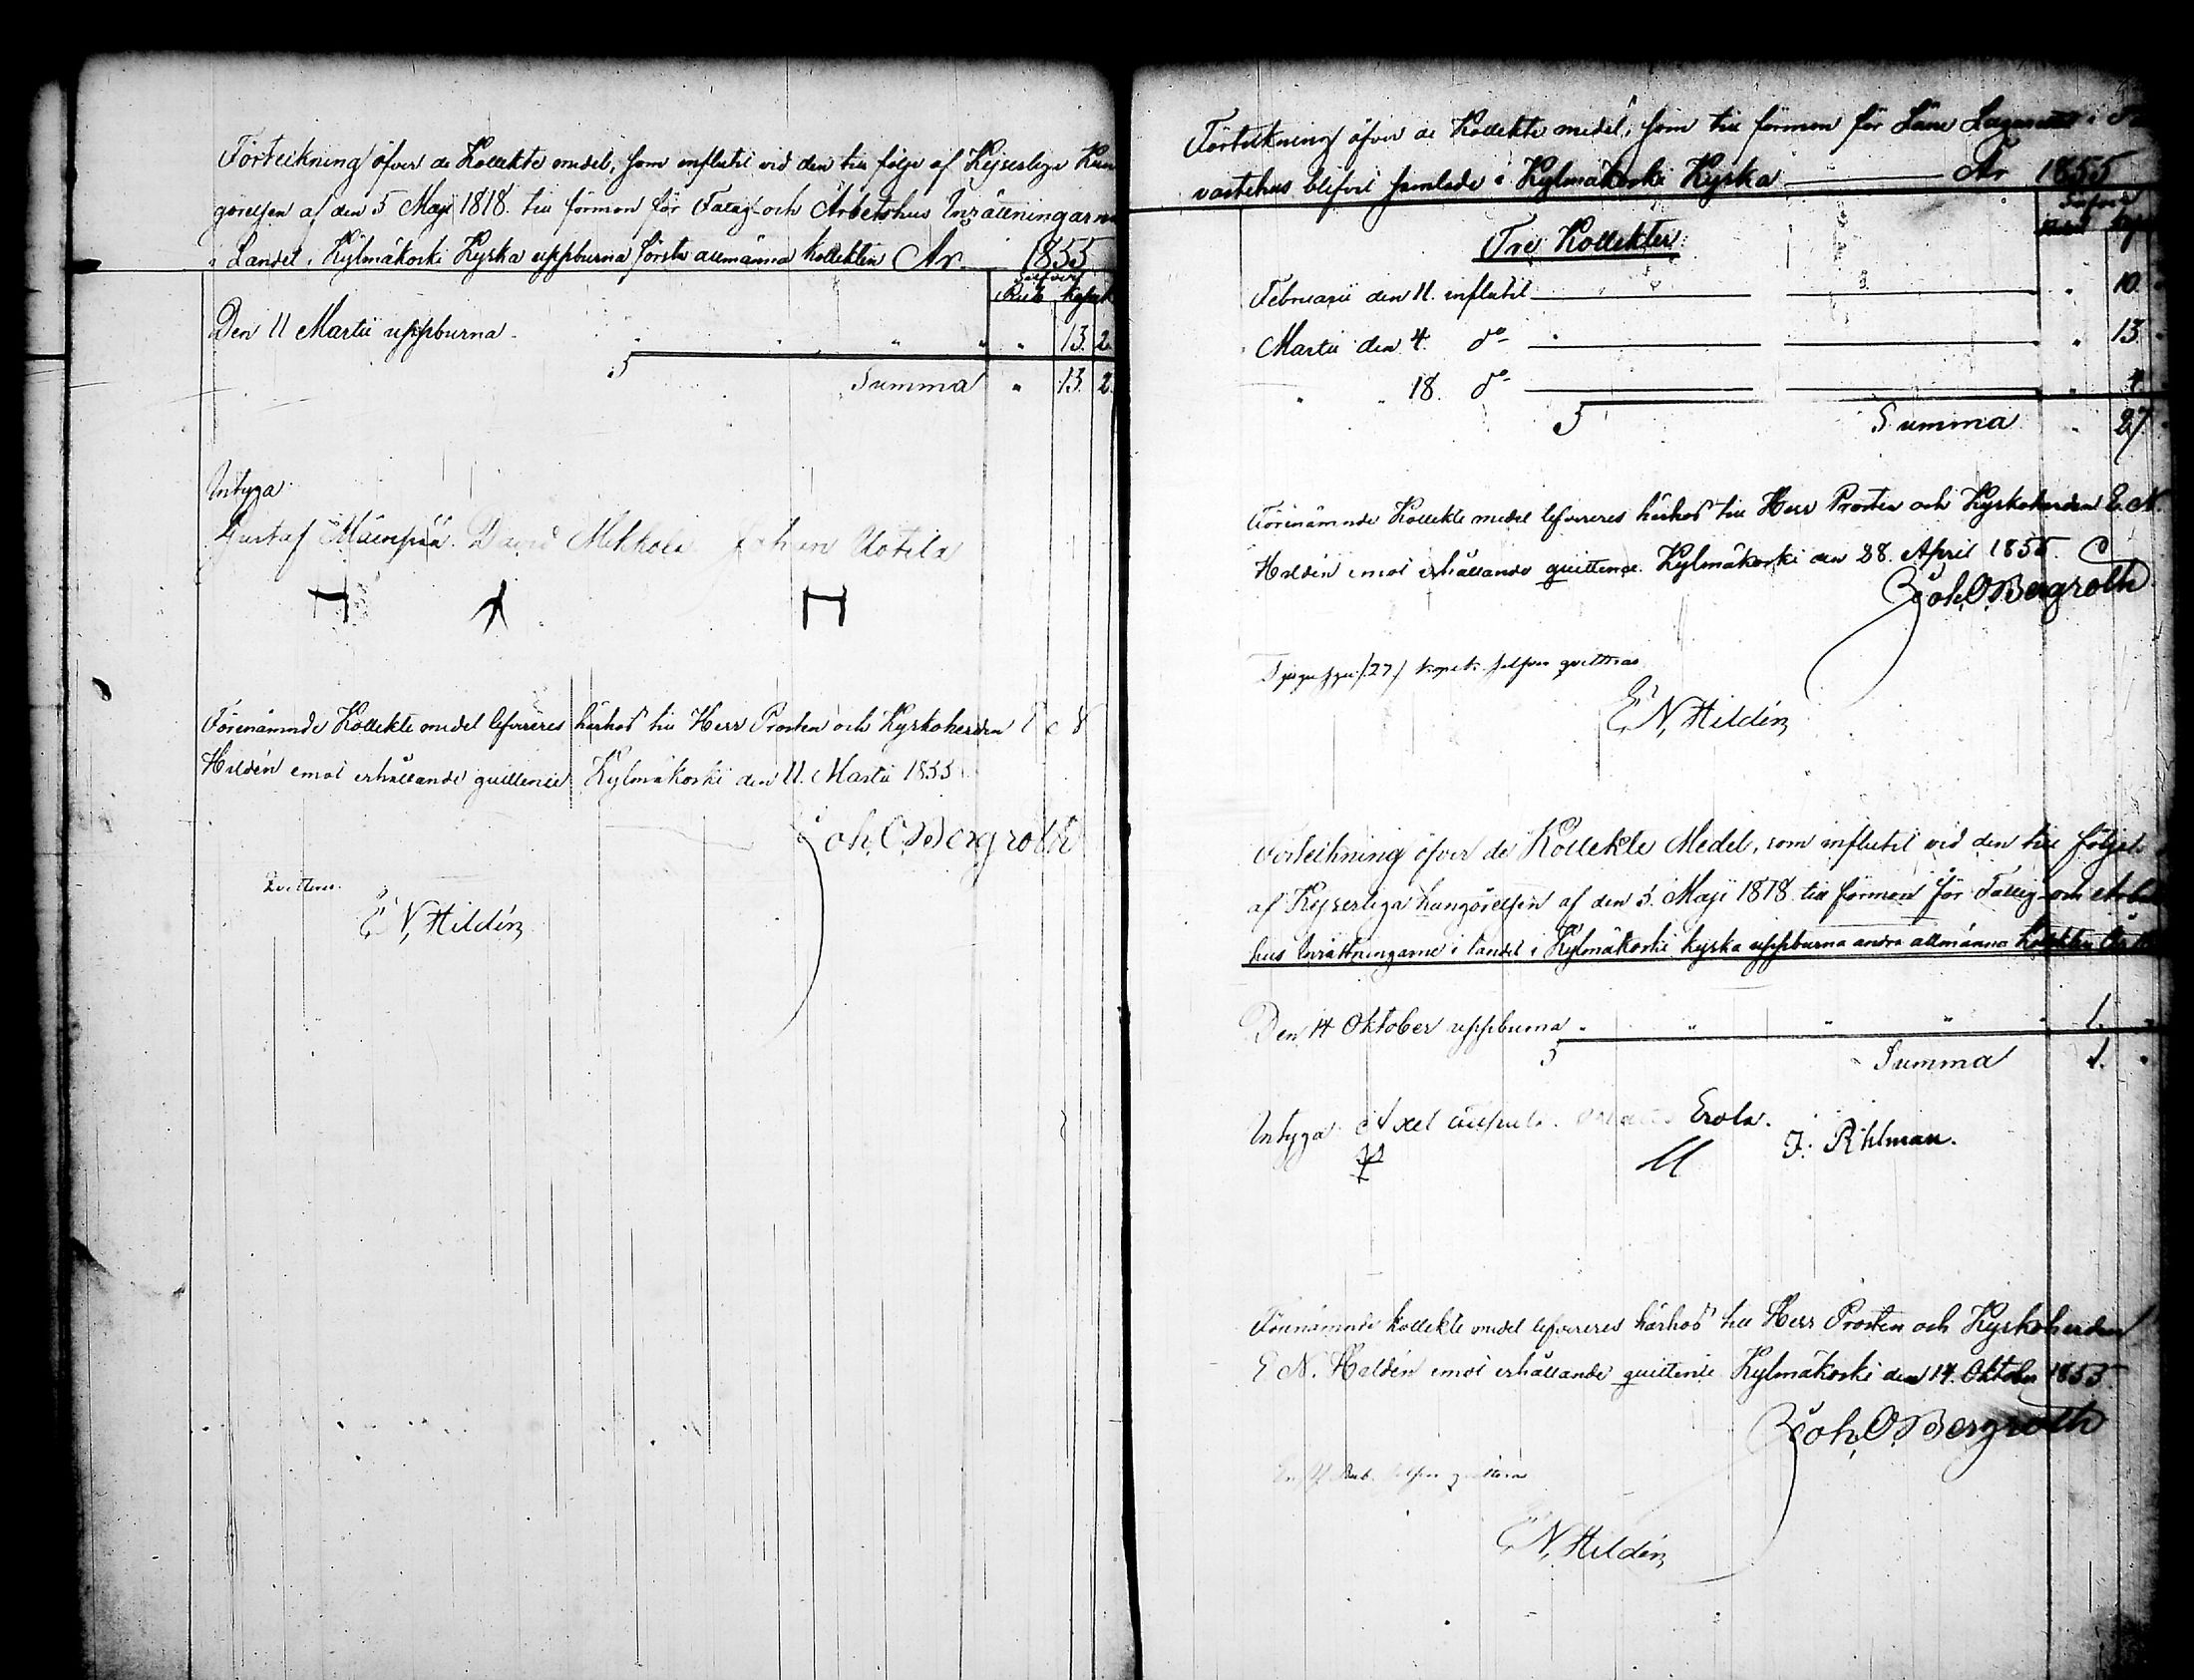 Förteckning öfver de Kollekte medel, som influtit vid den till följe af Kejserliga Kun
görelsen af den 5 Maji 1818 till förmon för Fattig- och Arbetshus Inrättningarne
i Landet i Kylmäkoski Kyrka uppburna första allmänna kollekten År 1855
Silfver
Rub. Kopek
Den 11 Martii uppburna " 13. 2.
S Summa " 13. 2.
Intyga
Gustaf David Mikkola Johan Uotila
Förenämnde Kollekte medel lefvereres härhos till Herr Prosten och Kyrkoherden E N
Hildén emot erhållande quittence Kylmäkoski den 11. Martii 1855
Joh. O. Bergroth
Quitteras
E. N. Hildén
Förteckning öfver de Kollekte medel, som till förmon för Läns Lazarettet i Ta
vastehus blifvit samlade i Kylmäkoski Kyrka År 1855
Silfver
Rubel Kopek
Tre Kollekter:
Februarii den 11. influtit " 10
Martii den 4. d:o " 13
" " 18. d:o " 4
S Summa " 27
Förenämnde Kollekte medel lefvereres härhos till Herr Prosten och Kyrkoherden E. N.
Hildén emot erhållande quittence. Kylmäkoski den 28. April 1855.
Joh. O. Bergroth
Tjugusju /27/ kopek silfver quitteras
E. N. Hildén
Förteckning öfver de Kollekte Medel, som influtit vid den till följe
af Kejserliga kungörelsen af den 5. Maji 1818 till förmon för Fattig- och Arbets
hus Inrättningarne i landet i Kylmäkoski kyrka uppburna andra allmänna kollekten År
Den 14 Oktober uppburna " " " " 1. "
S Summa 1. "
Intyga Axel Erola. J. Rihlman.
Förenämnde kollekte medel lefvereres härhos till Herr Prosten och Kyrkoherden
E. N. Hildén emot erhållande quittence Kylmäkoski den 14. Oktober 1855
Joh. O. Bergroth
En /1/ Rub. silfver quitteras
E. N. Hildén